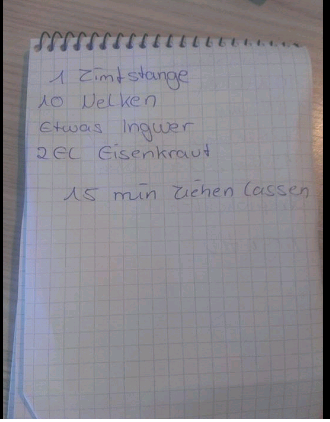 1 Zimtstange
10 Nelken
Etwas Ingwer
2 EL Eisenkraut
15 min ziehen lassen